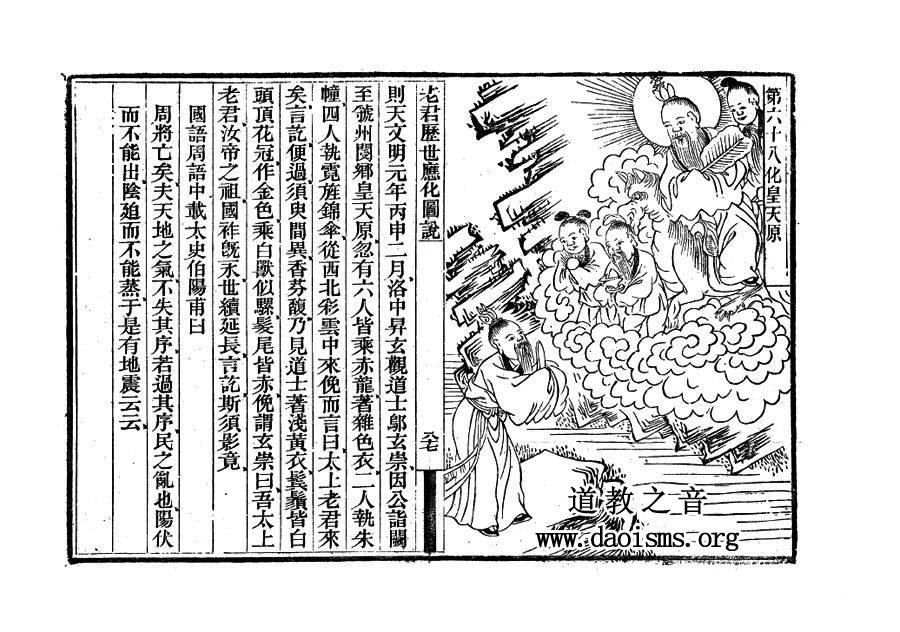 第六十八化皇天原
老君歷世應化圖說
則天文明元年丙申二月洛中昇玄觀道士鄔玄崇因公詣闕
至虢州閿鄉皇天原忽有六人皆乘赤龍著雜色衣二人執朱
幢四人執霓旌錦傘從西北彩雲中來俛而言曰太上老君來
矣言訖便過須臾間異香芬馥乃見道士著淺黃衣鬢鬚皆白
頭頂花冠作金色乘白獸似騾髮尾皆赤俛謂玄崇曰吾太上
老君汝帝之祖國祚旣永世續延長言訖斯須影竟
國語周語中載太史伯陽甫曰
周將亡矣夫天地之氣不失其序若過其序民之亂也陽伏
而不能出陰廹而不能蒸于是有地震云云
道教之音
www.daoisms.org